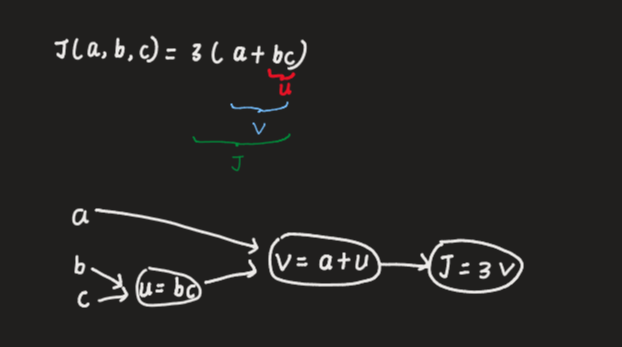 J(a,b,c) = 3(a+bc)
u
v
J
a
b
c
u=bc
v=a+u
J=3v